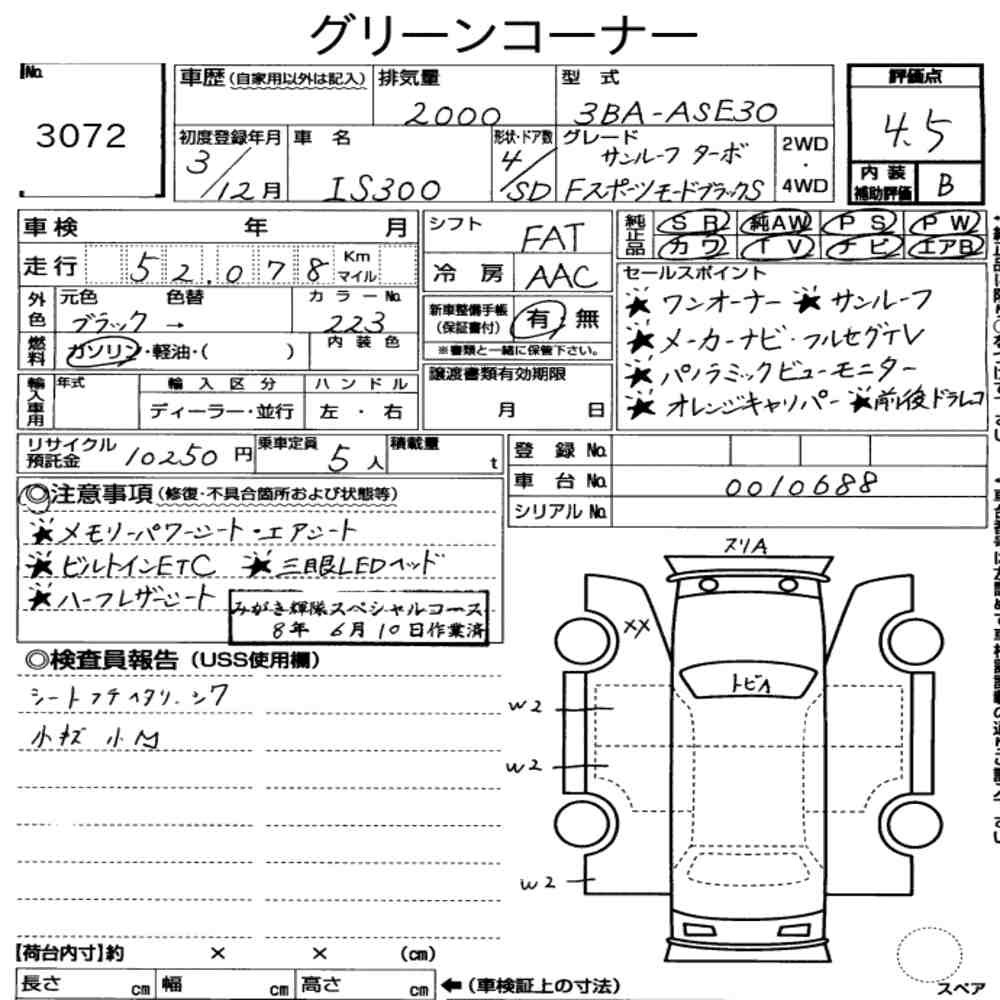 グリーンコーナー
No. 3072
車歴 (自家用以外は記入) 排気量 2000 型式 3BA-ASE30
評価点 4.5
初度登録年月 3/12月 車名 IS300 形状・ドア数 4/SD グレード サンルーフ ターボ FスポーツモードブラックS 2WD・4WD
内装補助評価 B
車検 年 月 シフト FAT 純正品 SR 純AW PS PW
走行 52.078 Km マイル 冷房 AAC カワ TV ナビ エアB
外色 元色 ブラック → 色替 カラーNo. 223
新車整備手帳 (保証書付) 有 無
※書類と一緒に保管下さい。
燃料 ガソリン・軽油・( ) 内装色
セールスポイント
★ワンオーナー ★サンルーフ
★メーカーナビ・フルセグTV
★パノラミックビューモニター
★オレンジキャリパー ★前後ドラレコ
輸入車用 年式 輸入区分 ディーラー・並行 ハンドル 左・右
譲渡書類有効期限 月 日
リサイクル預託金 10250円 乗車定員 5人 積載量 t
登録No.
車台No. 0010688
シリアルNo.
◎注意事項 (修復・不具合箇所および状態等)
★メモリーパワーシート・エアシート
★ビルトインETC ★三眼LEDヘッド
★ハーフレザーシート
みがき輝隊スペシャルコース
8年 6月 10日作業済
◎検査員報告 (USS使用欄)
小キズ 小凹
スリA
XX
トビA
W2
W2
W2
【荷台内寸】約 × × (cm)
長さ cm 幅 cm 高さ cm ←(車検証上の寸法)
スペア